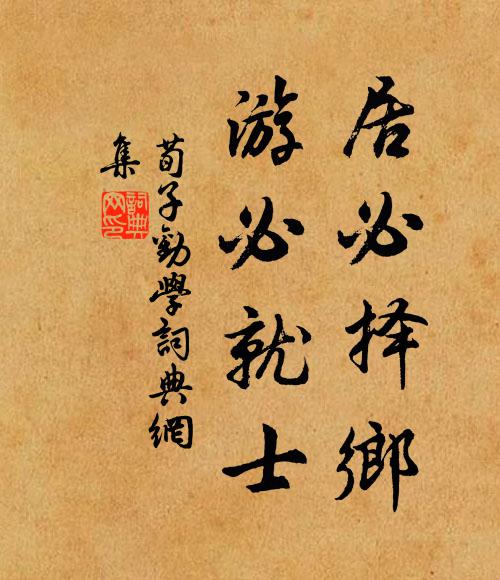 居必择鄉
游必就士
荀子勸學詞典網
集
詞典
网印